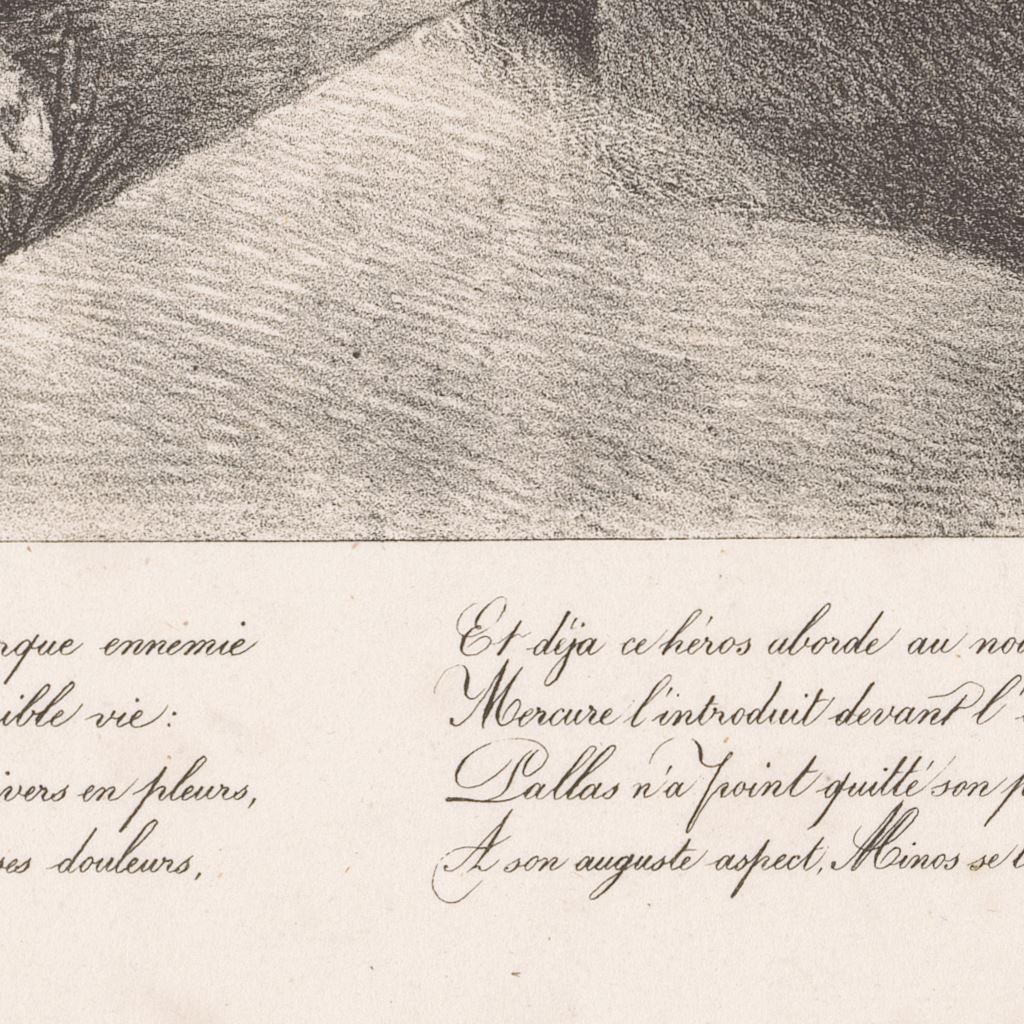 ennemie
vie :
en pleurs,
douleurs,
Et déja ce héros aborde au
Mercure l'introduit devant l'
Pallas n'a point quitté son
A son auguste aspect, Minos se